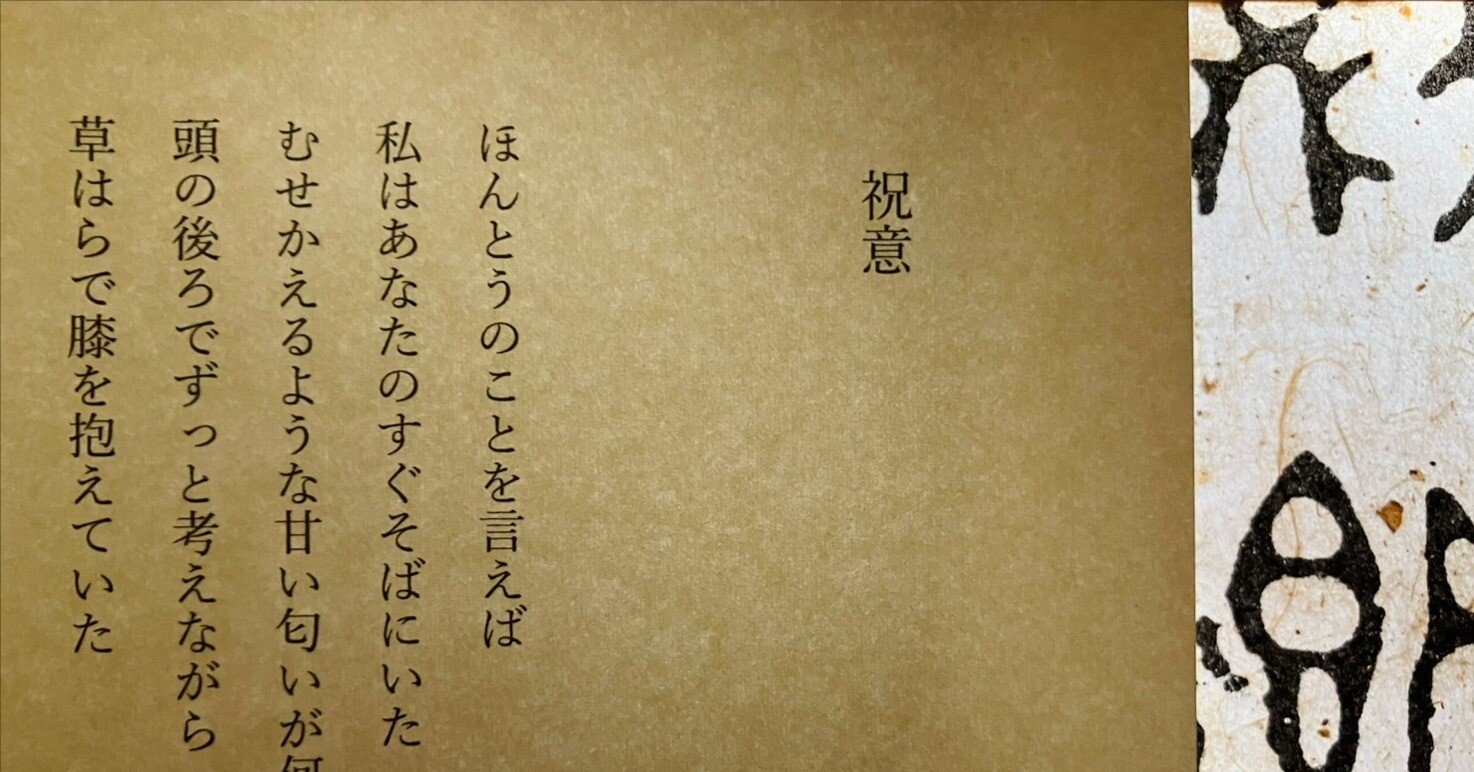 祝意
ほんとうのことを言えば
私はあなたのすぐそばにいた
むせかえるような甘い匂いが何
頭の後ろでずっと考えながら
草はらで膝を抱えていた